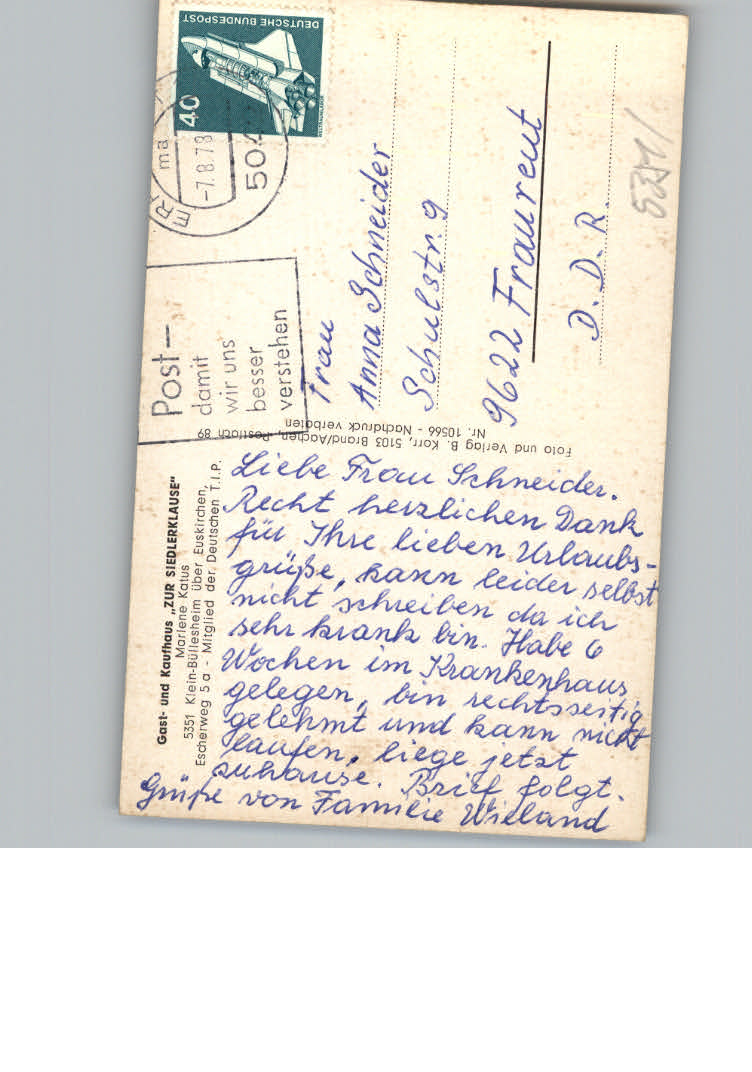 DEUTSCHE BUNDESPOST
40
-7.8.78
504
ma
ER
Post-
damit
wir uns
besser
verstehen
Frau
Anna Schneider
Schulstr. 9
9622 Fraureut
D. D. R.
5351/
Foto und Verlag B. Korr, 5103 Brand/Aachen, Postfach 89
Nr. 10566 - Nachdruck verboten
Gast- und Kaufhaus „ZUR SIEDLERKLAUSE"
Marlene Katus
5351 Klein-Büllesheim über Euskirchen,
Escherweg 5 a - Mitglied der Deutschen T.I.P.
Liebe Frau Schneider.
Recht herzlichen Dank
für Ihre lieben Urlaubs-
grüße, kann leider selbst
nicht schreiben da ich
sehr krank bin. Habe 6
Wochen im Krankenhaus
gelegen, bin rechtsseitig
gelehmt und kann nicht
laufen, liege jetzt
zuhause. Brief folgt.
Grüße von Familie Wieland